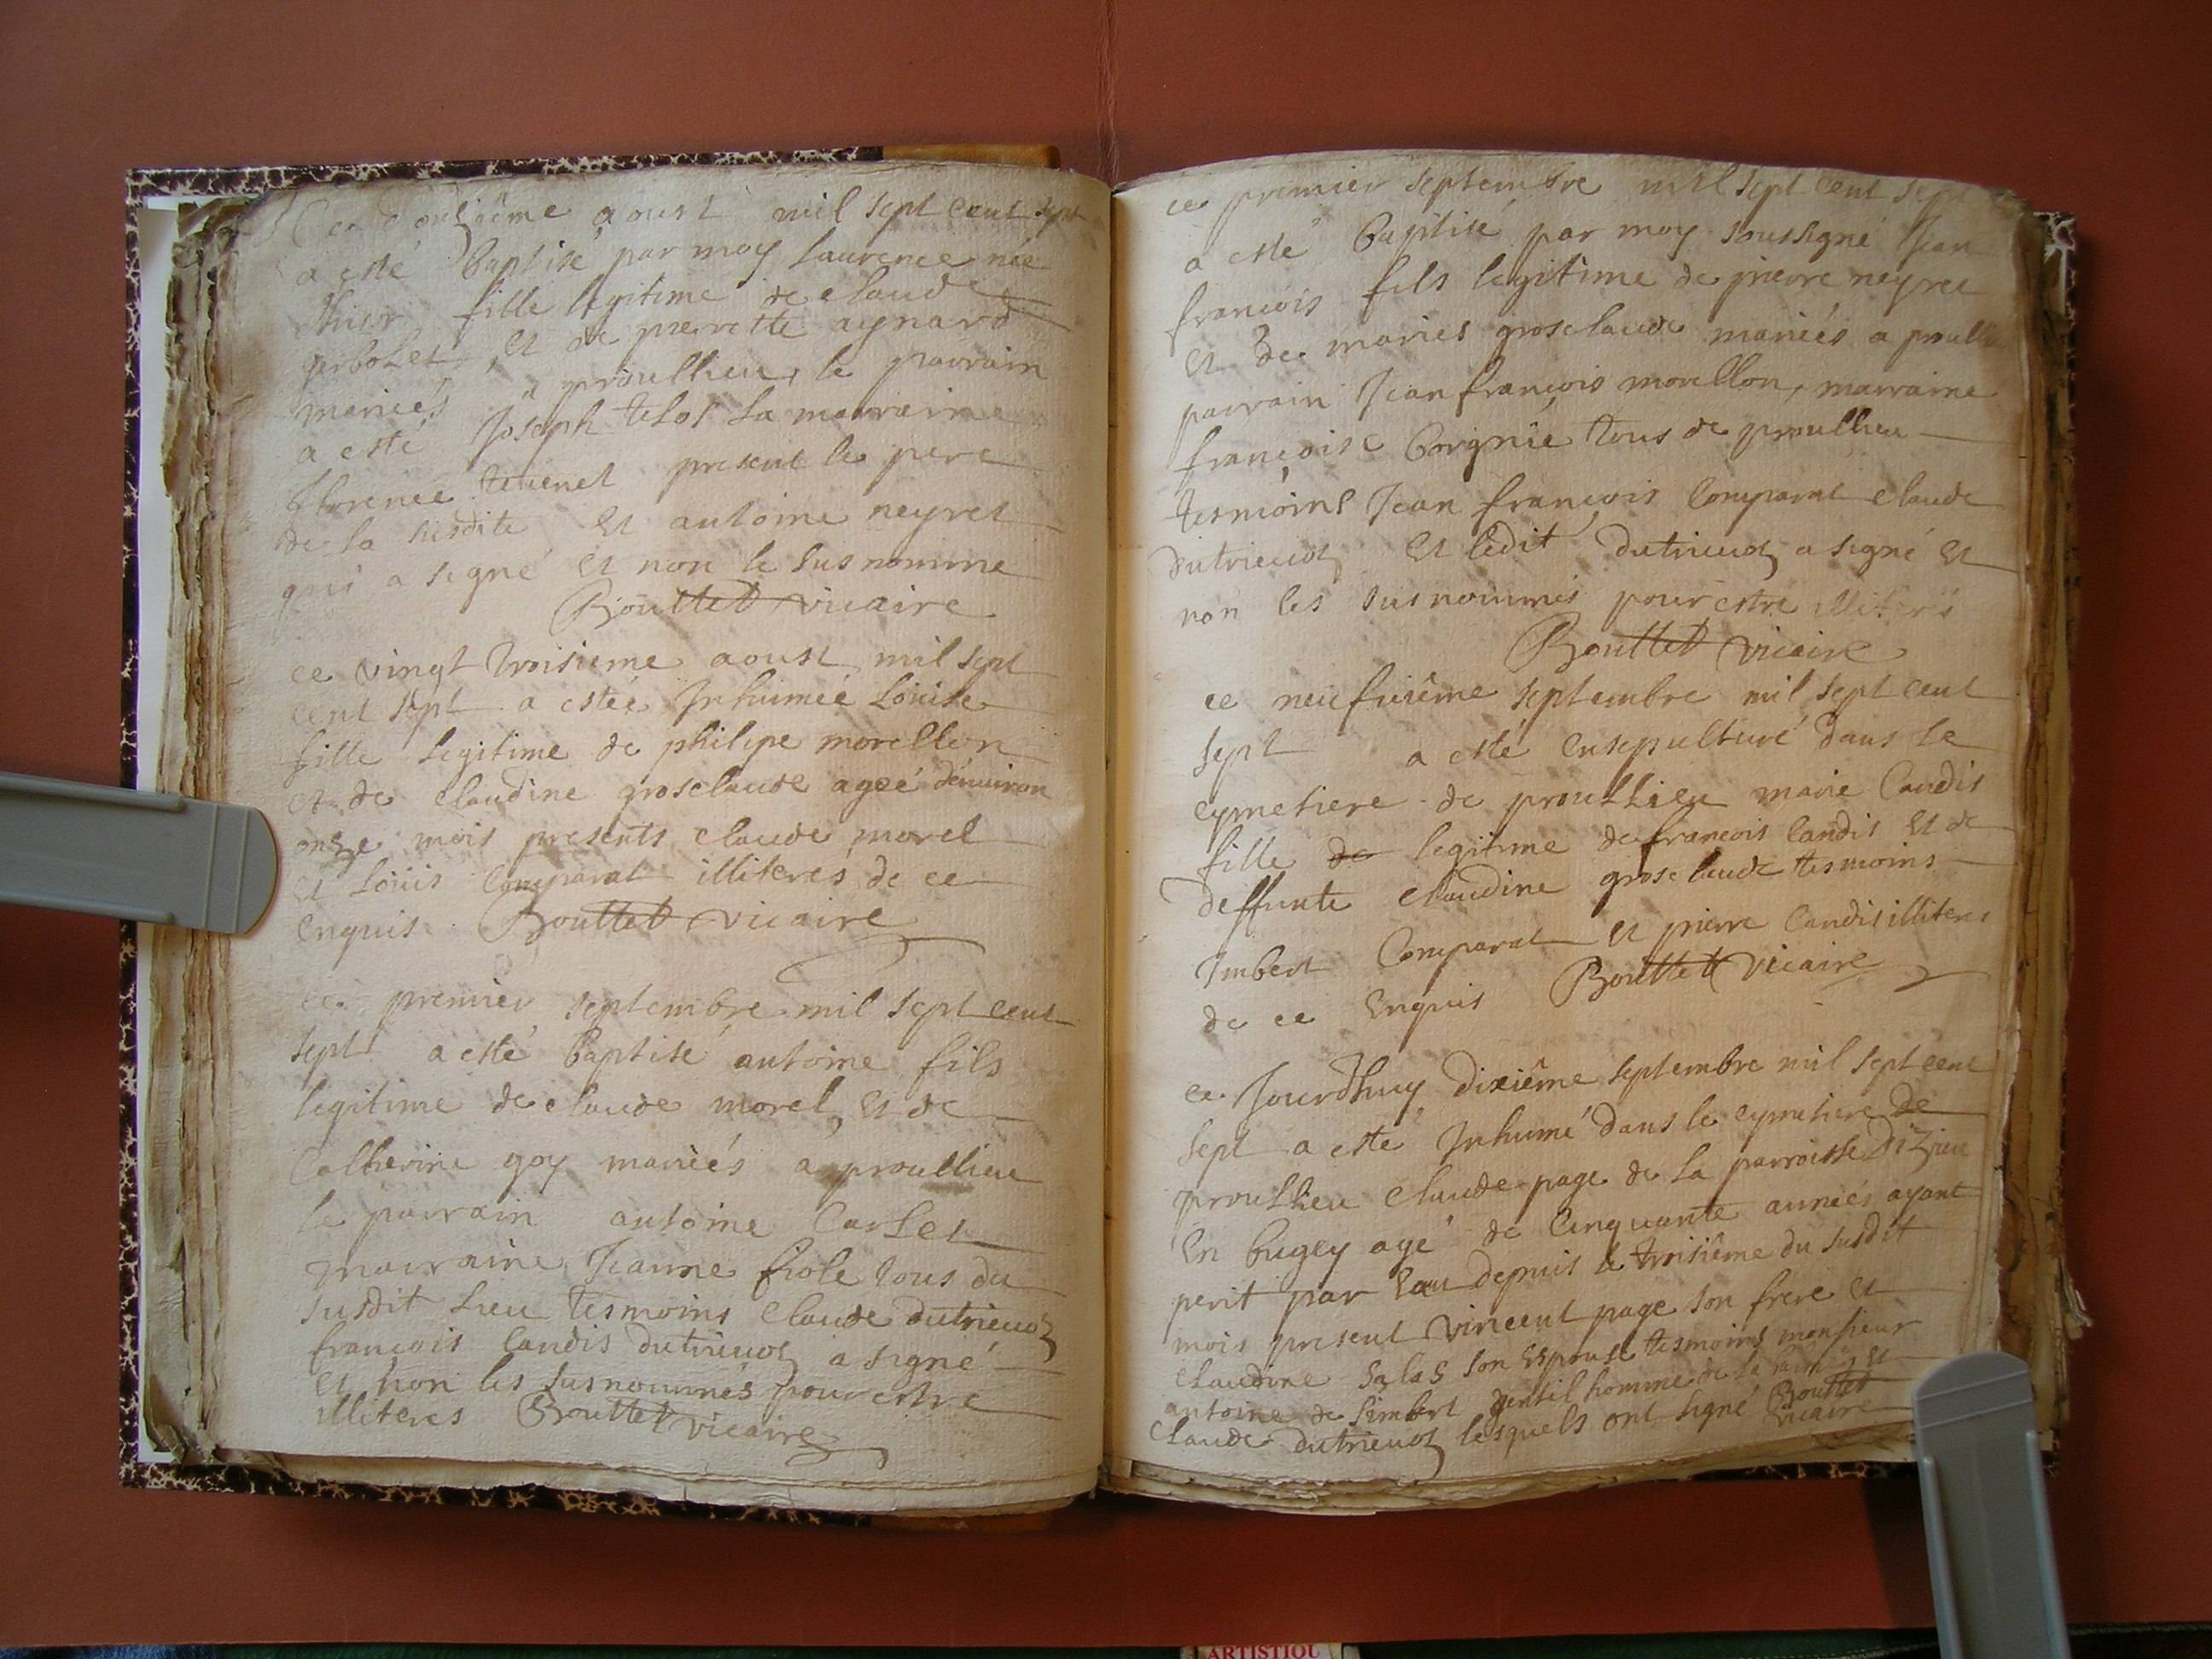 Ce douziême aoust mil sept cent sept
a esté baptisé par moy laurence née
fille legitime de claude
et de pierrette aynard
mariés a proullieu, le parrain
a esté Joseph telos la marraine
florence tevenet present le pere
de la susdite et antoine neyret
qui a signé et non le sus nommé
Bouttet vicaire
ce vingt troisieme aoust mil sept
cent sept a estée Inhumée Loüise
fille legitime de philipe morellon
et de claudine grosclaude ageé d'enuiron
onze mois presents claude morel
et Loüis Comparat illiterés de ce
enquis Bouttet vicaire
ce premier septembre mil sept cent
sept a esté baptisé antoine fils
legitime de claude morel, et de
Catherine goy mariés a proullieu
le parrain antoine Carlet
marraine Jeanne fiole tous du
susdit Lieu tesmoins Claude dutrieuoz
francois Candis dutrieuoz a signé
et non les susnommés pour estre
illiteres Bouttet vicaire
ce premier septembre mil sept cent sept
a esté baptisé par moy soussigné Jean
francois fils legitime de pierre neyret
et de maries grosclaude mariés a proullieu
parrain Jean françois morellon, marraine
françoise Borgnié tous de proullieu
tesmoins Jean françois Comparat claude
dutrieuoz et ledit dutrieuoz a signé et
non les susnommés pour estre illiterés
Bouttet vicaire
ce neufuiême septembre mil sept cent
sept a esté ensepulturé dans le
cymetiere de proullieu marie Candis
fille de legitime de francois Candis et de
deffunte claudine grosclaude tesmoins
Imbert Comparat et pierre Candis illiteres
de ce enquis Bouttet vicaire
ce Jourdhuy dixiême septembre mil sept cent
sept a esté Inhumé dans le cymetiere de
proullieu claude page de la parroisse dizieu
en bugey agé de cinquante années ayant
perit par l'eau depuis le troisiême du susdit
mois present vincent page son frere et
claudine Salas son espouse tesmoins monsieur
antoine de simbert gentil homme de la et
claude dutrieuoz lesquels ont signé Bouttet
vicaire
ARTISTIQU